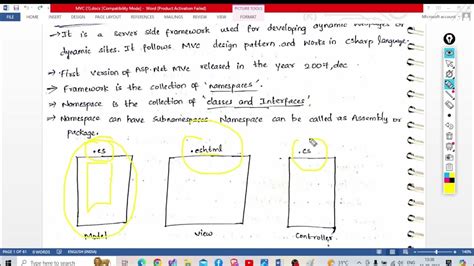 MVC (1).docx [Compatibility Mode] - Word (Product Activation Failed)
PICTURE TOOLS
FILE HOME INSERT DESIGN PAGE LAYOUT REFERENCES MAILINGS REVIEW VIEW FORMAT
Microsoft account
→ It is a server side framework used for developing dynamic webpages or
dynamic sites. It follows MVC design pattern and works in CSharp language.
→ First version of Asp.Net MVC released in the year 2007, dec.
→ Framework is the collection of 'namespaces'.
→ Namespace is the collection of 'classes and Interfaces'.
→ Namespace can have Subnamespaces. Namespace can be called as Assembly or
package.
.cs .cshtml .cs
Model View Controller
PAGE 1 OF 61 0 WORDS ENGLISH (INDIA)
31°C ENG